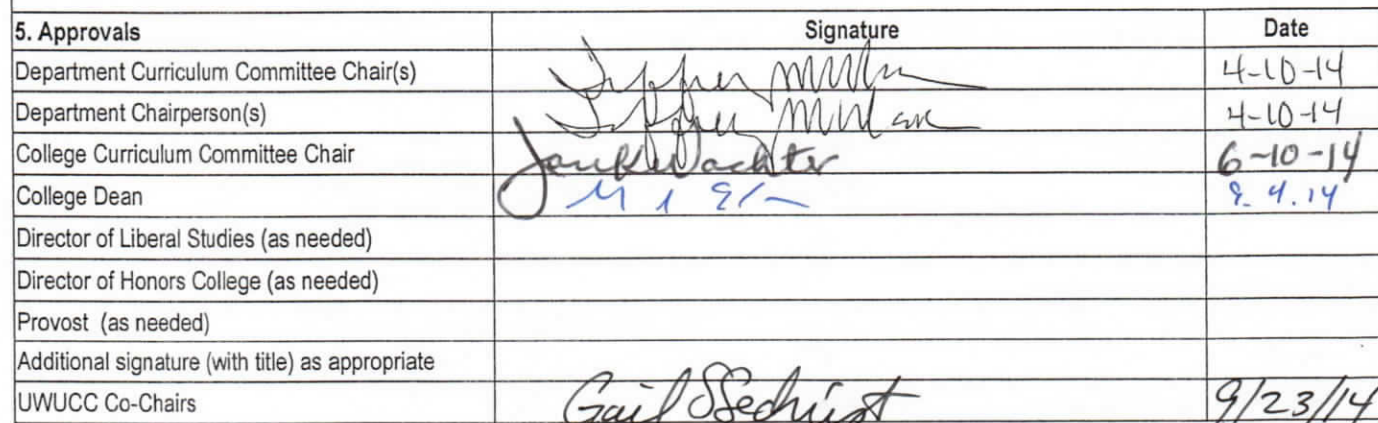 5. Approvals Signature Date
Department Curriculum Committee Chair(s) 4-10-14
Department Chairperson(s) 4-10-14
College Curriculum Committee Chair Wachter 6-10-14
College Dean 9.4.14
Director of Liberal Studies (as needed)
Director of Honors College (as needed)
Provost (as needed)
Additional signature (with title) as appropriate
UWUCC Co-Chairs Gail S Sechrist 9/23/14